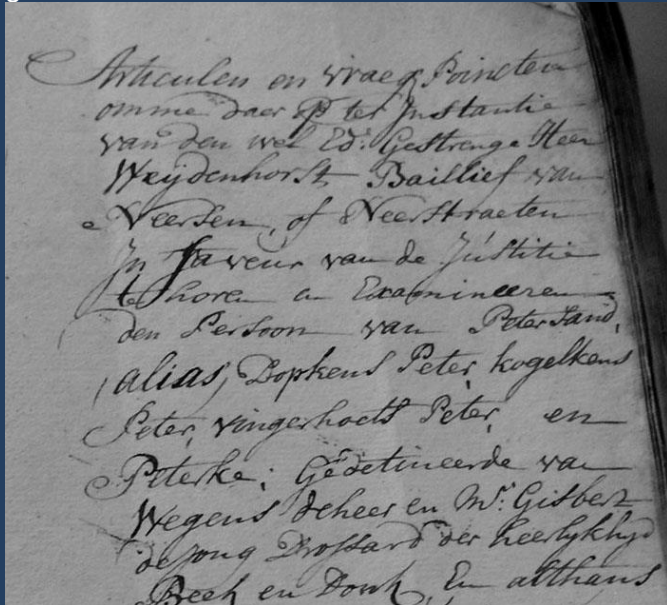 Articulen en vraeg Poincten
omme daer op ter Instantie
van den wel Ed: Gestrenge Heer
Weijdenhorst Baillief van
Neersen, of Neerstraeten
In faveur van de Justitie
te horen en Examineeren
den Persoon van Peter Sand,
(alias) Dopkens Peter, kogelkens
Peter, vingerhoets Peter, en
Peterke; Gedetineerde van
Wegens deheer en Mr: Gisbert
de jong Drossard der heerlykhyd
Beek en Donk, En althans